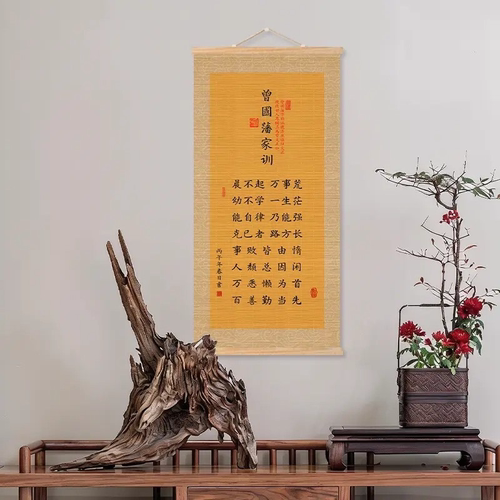 曾國藩家训
晨不起万事荒
幼不学一生茫
能自律乃能强
克己者路方长
事败皆由惰
人颓总因闲
万恶懒为首
百善勤当先
丙午年春日書